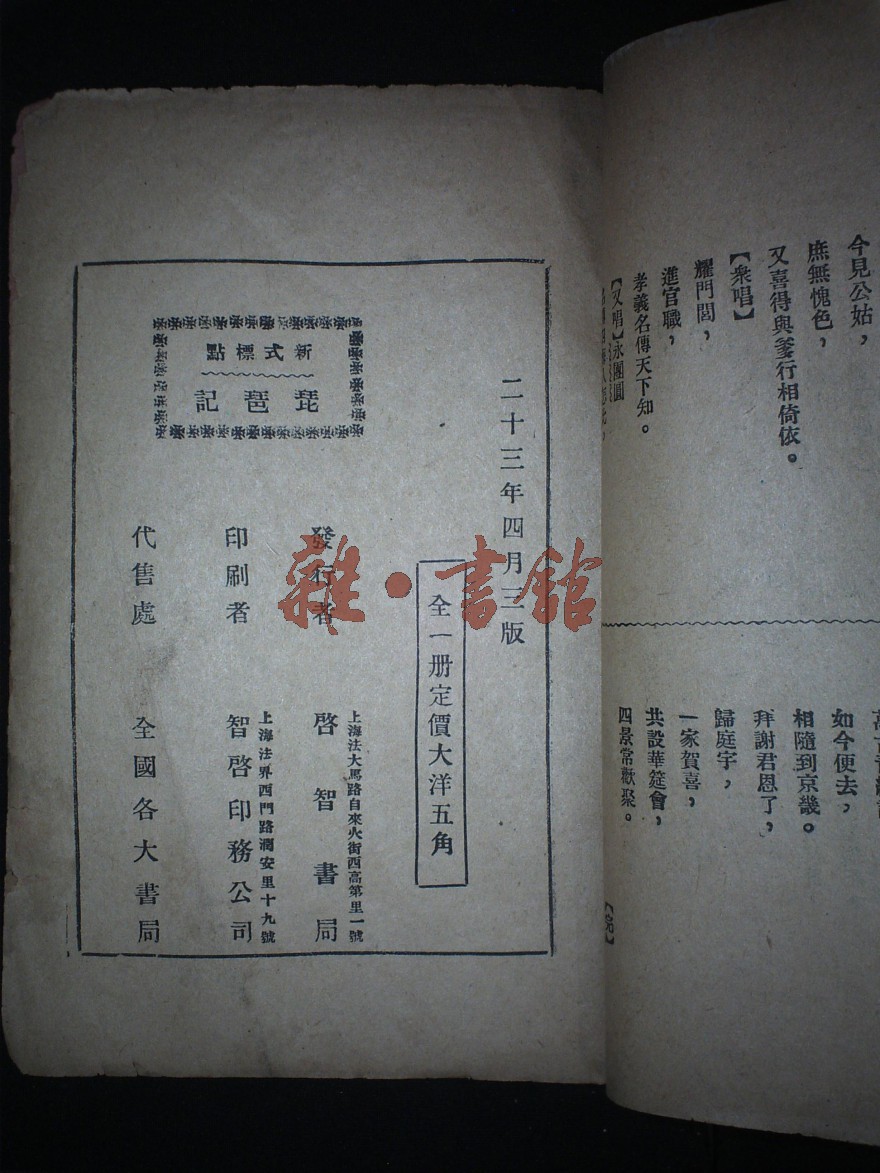 今見公姑，
庶無愧色，
又喜得與爹行相倚依。
【衆唱】
耀門閭，
進官職，
孝義名傳天下知。
【又唱】永團圓
如今便去，
相隨到京畿。
拜謝君恩了，
歸庭宇，
一家賀喜，
共設華筵會，
四景常歡聚。
【完】
二十三年四月三版
全一册定價大洋五角
新式標點
琵琶記
發行者
上海法大馬路自來火街西高第里一號
啓智書局
印刷者
上海法界西門路潤安里十九號
智啓印務公司
代售處
全國各大書局
雜·書館